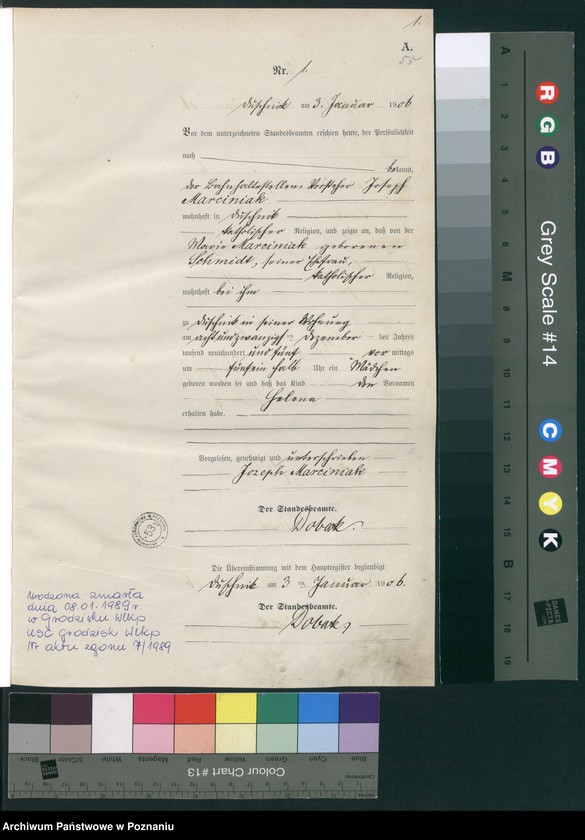 1.
A.
55
Nr. 1.
Duschnik am 3. Januar 1906
Vor dem unterzeichneten Standesbeamten erschien heute, der Persönlichkeit
nach bekannt,
der Bahnhaltestellen Vorsteher Joseph
Marciniak
wohnhaft in Duschnik
katholischer Religion, und zeigte an, daß von der
Marie Marciniak geborenen
Schmidt, seiner Ehefrau,
katholischer Religion,
wohnhaft bei ihm
zu Duschnik in seiner Wohnung
am achtundzwanzigsten Dezember des Jahres
tausend neunhundert und fünf vor mittags
um fünfein halb Uhr ein Mädchen
geboren worden sei und daß das Kind den Vornamen
Helena
erhalten habe.
Vorgelesen, genehmigt und unterschrieben
Joseph Marciniak
Der Standesbeamte.
Dobak.
Die Übereinstimmung mit dem Hauptregister beglaubigt
Duschnik am 3 ten Januar 1906.
Der Standesbeamte.
Dobak,
53
Urodzona zmarła
dnia 08.01.1989 r.
w Grodzisku Wlkp
USC Grodzisk Wlkp
Nr aktu zgonu 7/1989
A 1 2 3 4 5 M 6 7 8 9 10 11 12 13 14 15 B 16 17 18 19
R
G
B
Grey Scale #14
C
M
Y
K
DANES
PICTA
.COM
Black 3/Color White Magenta Red Yellow Green Cyan Blue
Colour Chart #13
Centimetres
Archiwum Państwowe w Poznaniu